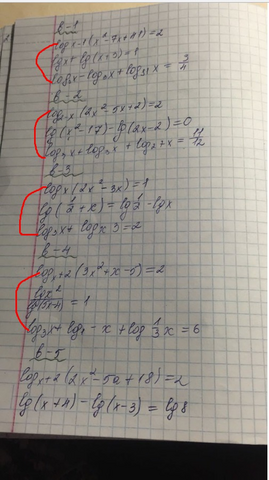 в-1
log x-1 (x² - 7x + 41) = 2
lgx + lg(x+3) = 1
log₂x - log₄x + log₈x = 3/4
в-2
log₂-x (2x² - 5x + 2) = 2
lg(x² - 17) - lg(2x - 2) = 0
log₂x + log₃x + log₄x = 11/12
в-3
logx (2x² - 3x) = 1
lg(1/2 + x) = lg 1/2 - lgx
log₃x + logx 3 = 2
в-4
logx+2 (3x² + x - 5) = 2
lgx² / lg(5x-4) = 1
log₃x + log₂ - x + log 1/3 x = 6
в-5
logx+2 (2x² - 5a + 18) = 2
lg(x+4) - lg(x-3) = lg8